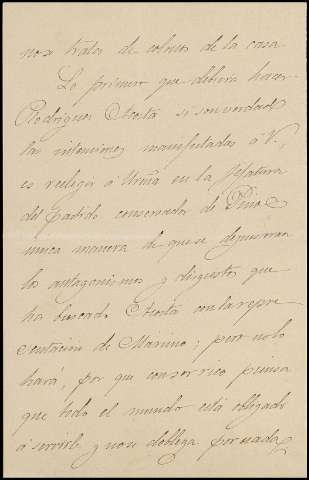 nos trata de colores de la casa
Lo primero que debiera hacer
Rodriguez Acosta si son verdad
las intenciones manifestadas á V.,
es relegir á Ureña en la jefatura
del partido conservador de Pino
unica manera de que se
los antagonismos y disgustos que
ha buscado Acosta con la repre
sentación de Marino; pero no lo
hará, por que con ser rico piensa
que todo el mundo está obligado
á servirle y no se doblega por nada,